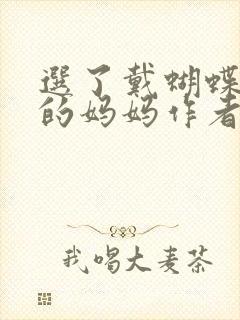 選了戴蝴蝶
的妈妈作者
我喝大麦茶